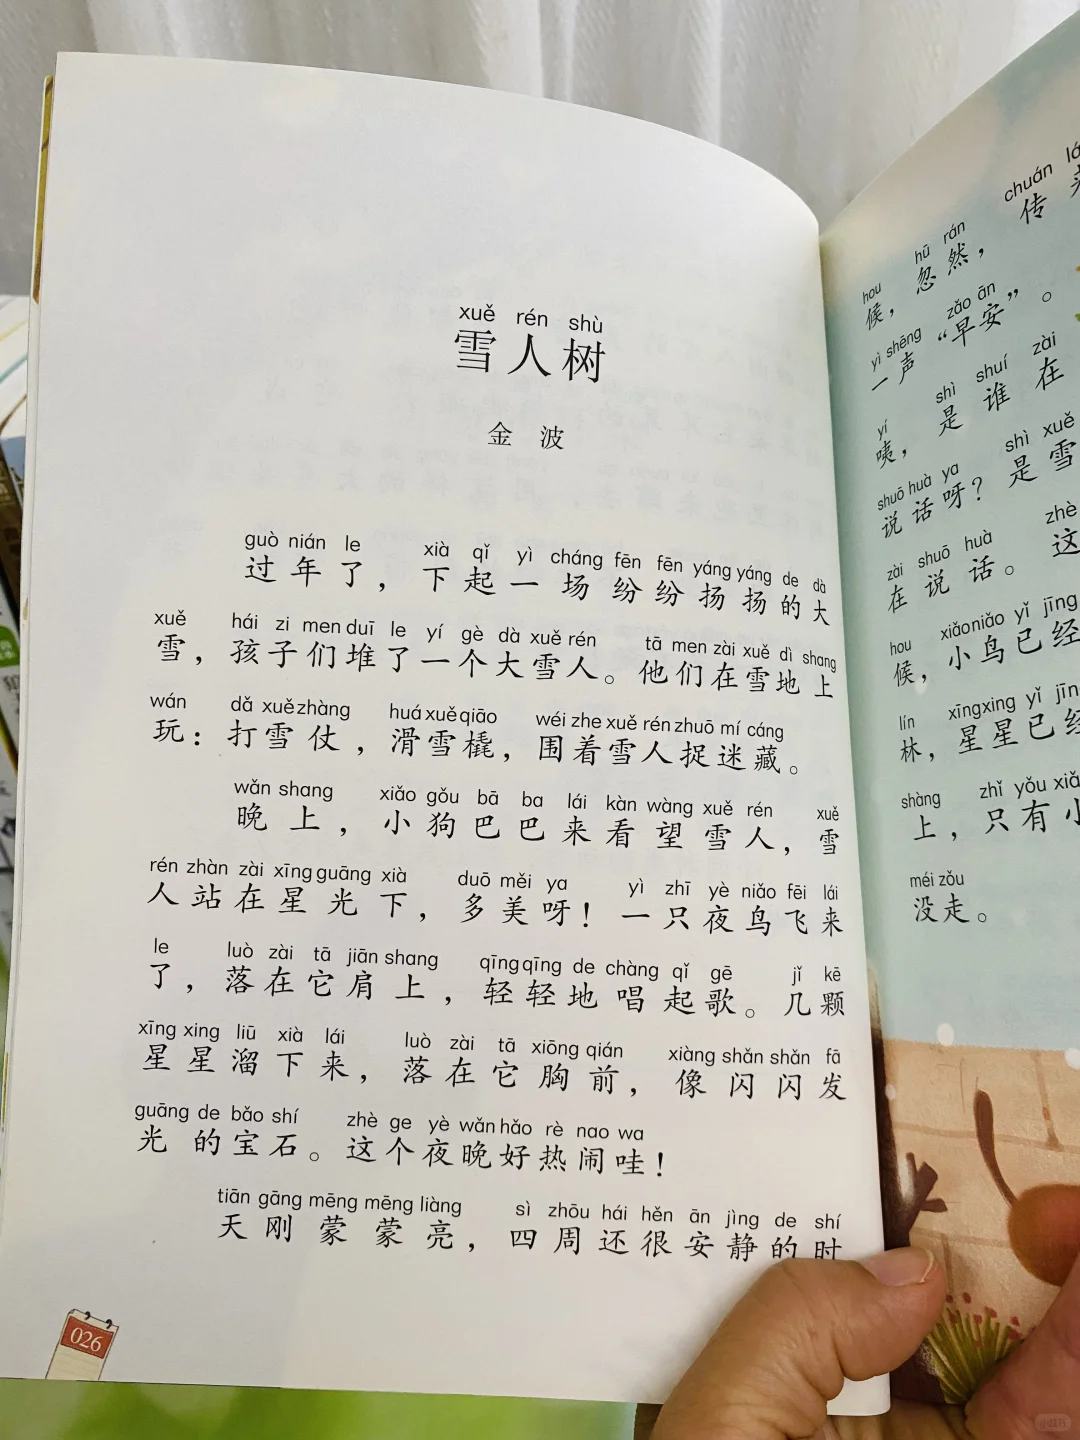 xuě rén shù
雪人树
金 波
guò nián le xià qǐ yì cháng fēn fēn yáng yáng de dà
过年了，下起一场纷纷扬扬的大
xuě hái zi men duī le yí gè dà xuě rén tā men zài xuě dì shang
雪，孩子们堆了一个大雪人。他们在雪地上
wán dǎ xuě zhàng huá xuě qiāo wéi zhe xuě rén zhuō mí cáng
玩：打雪仗，滑雪橇，围着雪人捉迷藏。
wǎn shang xiǎo gǒu bā ba lái kàn wàng xuě rén xuě
晚上，小狗巴巴来看望雪人，雪
rén zhàn zài xīng guāng xià duō měi ya yì zhī yè niǎo fēi lái
人站在星光下，多美呀！一只夜鸟飞来
le luò zài tā jiān shang qīng qīng de chàng qǐ gē jǐ kē
了，落在它肩上，轻轻地唱起歌。几颗
xīng xing liū xià lái luò zài tā xiōng qián xiàng shǎn shǎn fā
星星溜下来，落在它胸前，像闪闪发
guāng de bǎo shí zhè ge yè wǎn hǎo rè nao wa
光的宝石。这个夜晚好热闹哇！
tiān gāng mēng mēng liàng sì zhōu hái hěn ān jìng de shí
天刚蒙蒙亮，四周还很安静的时
026
hou hū rán chuán
候，忽然，传
yì shēng zǎo ān
一声“早安”。
yí shì shuí zài
咦，是谁在
shuō huà ya shì xuě
说话呀？是雪
zài shuō huà zhè
在说话。这
hou xiǎo niǎo yǐ jīng
候，小鸟已经
lín xīng xing yǐ jīng
林，星星已经
shàng zhǐ yǒu xiǎo
上，只有小
méi zǒu
没走。